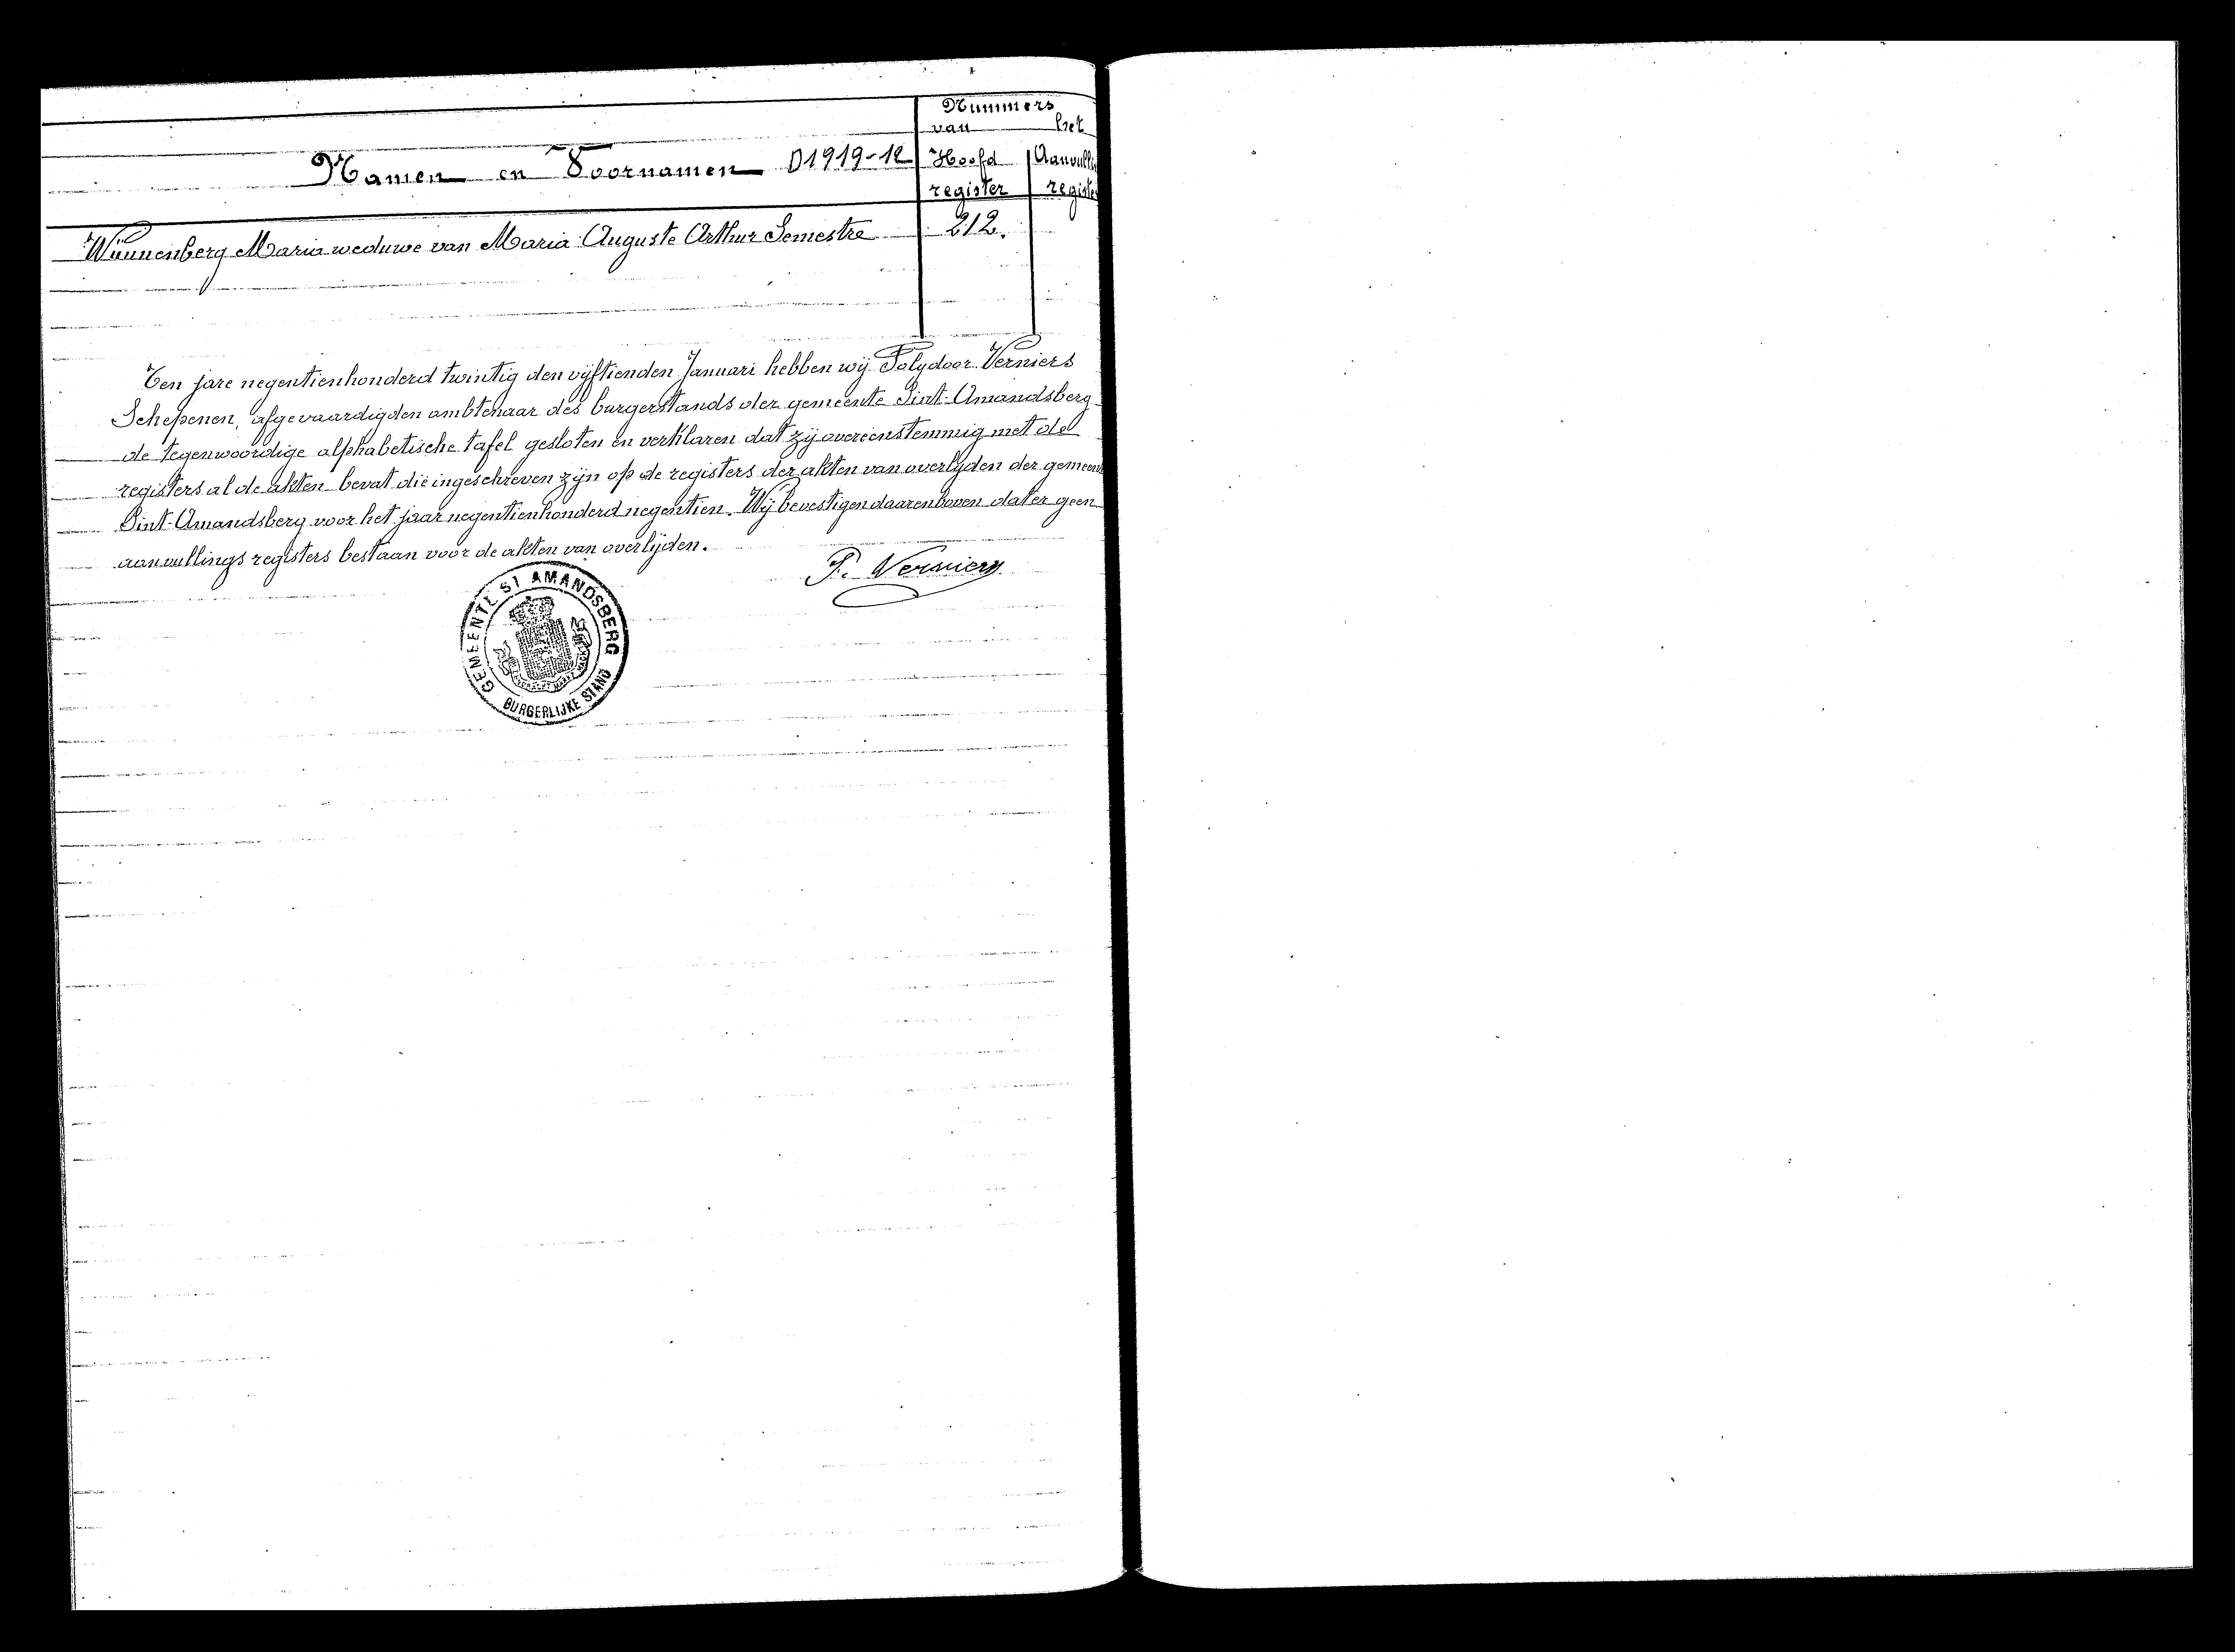 Nummers
van het
Namen en Voornamen D1919-12 Hoofd
register
Wünnenberg Maria weduwe van Maria Auguste Arthur Semestre 212.
Ten jare negentienhonderd twintig den vijftienden Januari hebben wij Polydoor Verniers
Schepenen, afgevaardigden ambtenaar des burgerstands der gemeente Sint-Amandsberg
de tegenwoordige alphabetische tafel gesloten en verklaren dat zij overeenstemmig met de
registers al de akten bevat die ingeschreven zijn op de registers der akten van overlijden der
Sint-Amandsberg voor het jaar negentienhonderd negentien. Wij bevestigen daarenboven dat er geen
aanvullings registers bestaan voor de akten van overlijden.
P. Verniers
GEMEENTE ST AMANDSBERG
BURGERLIJKE STAND